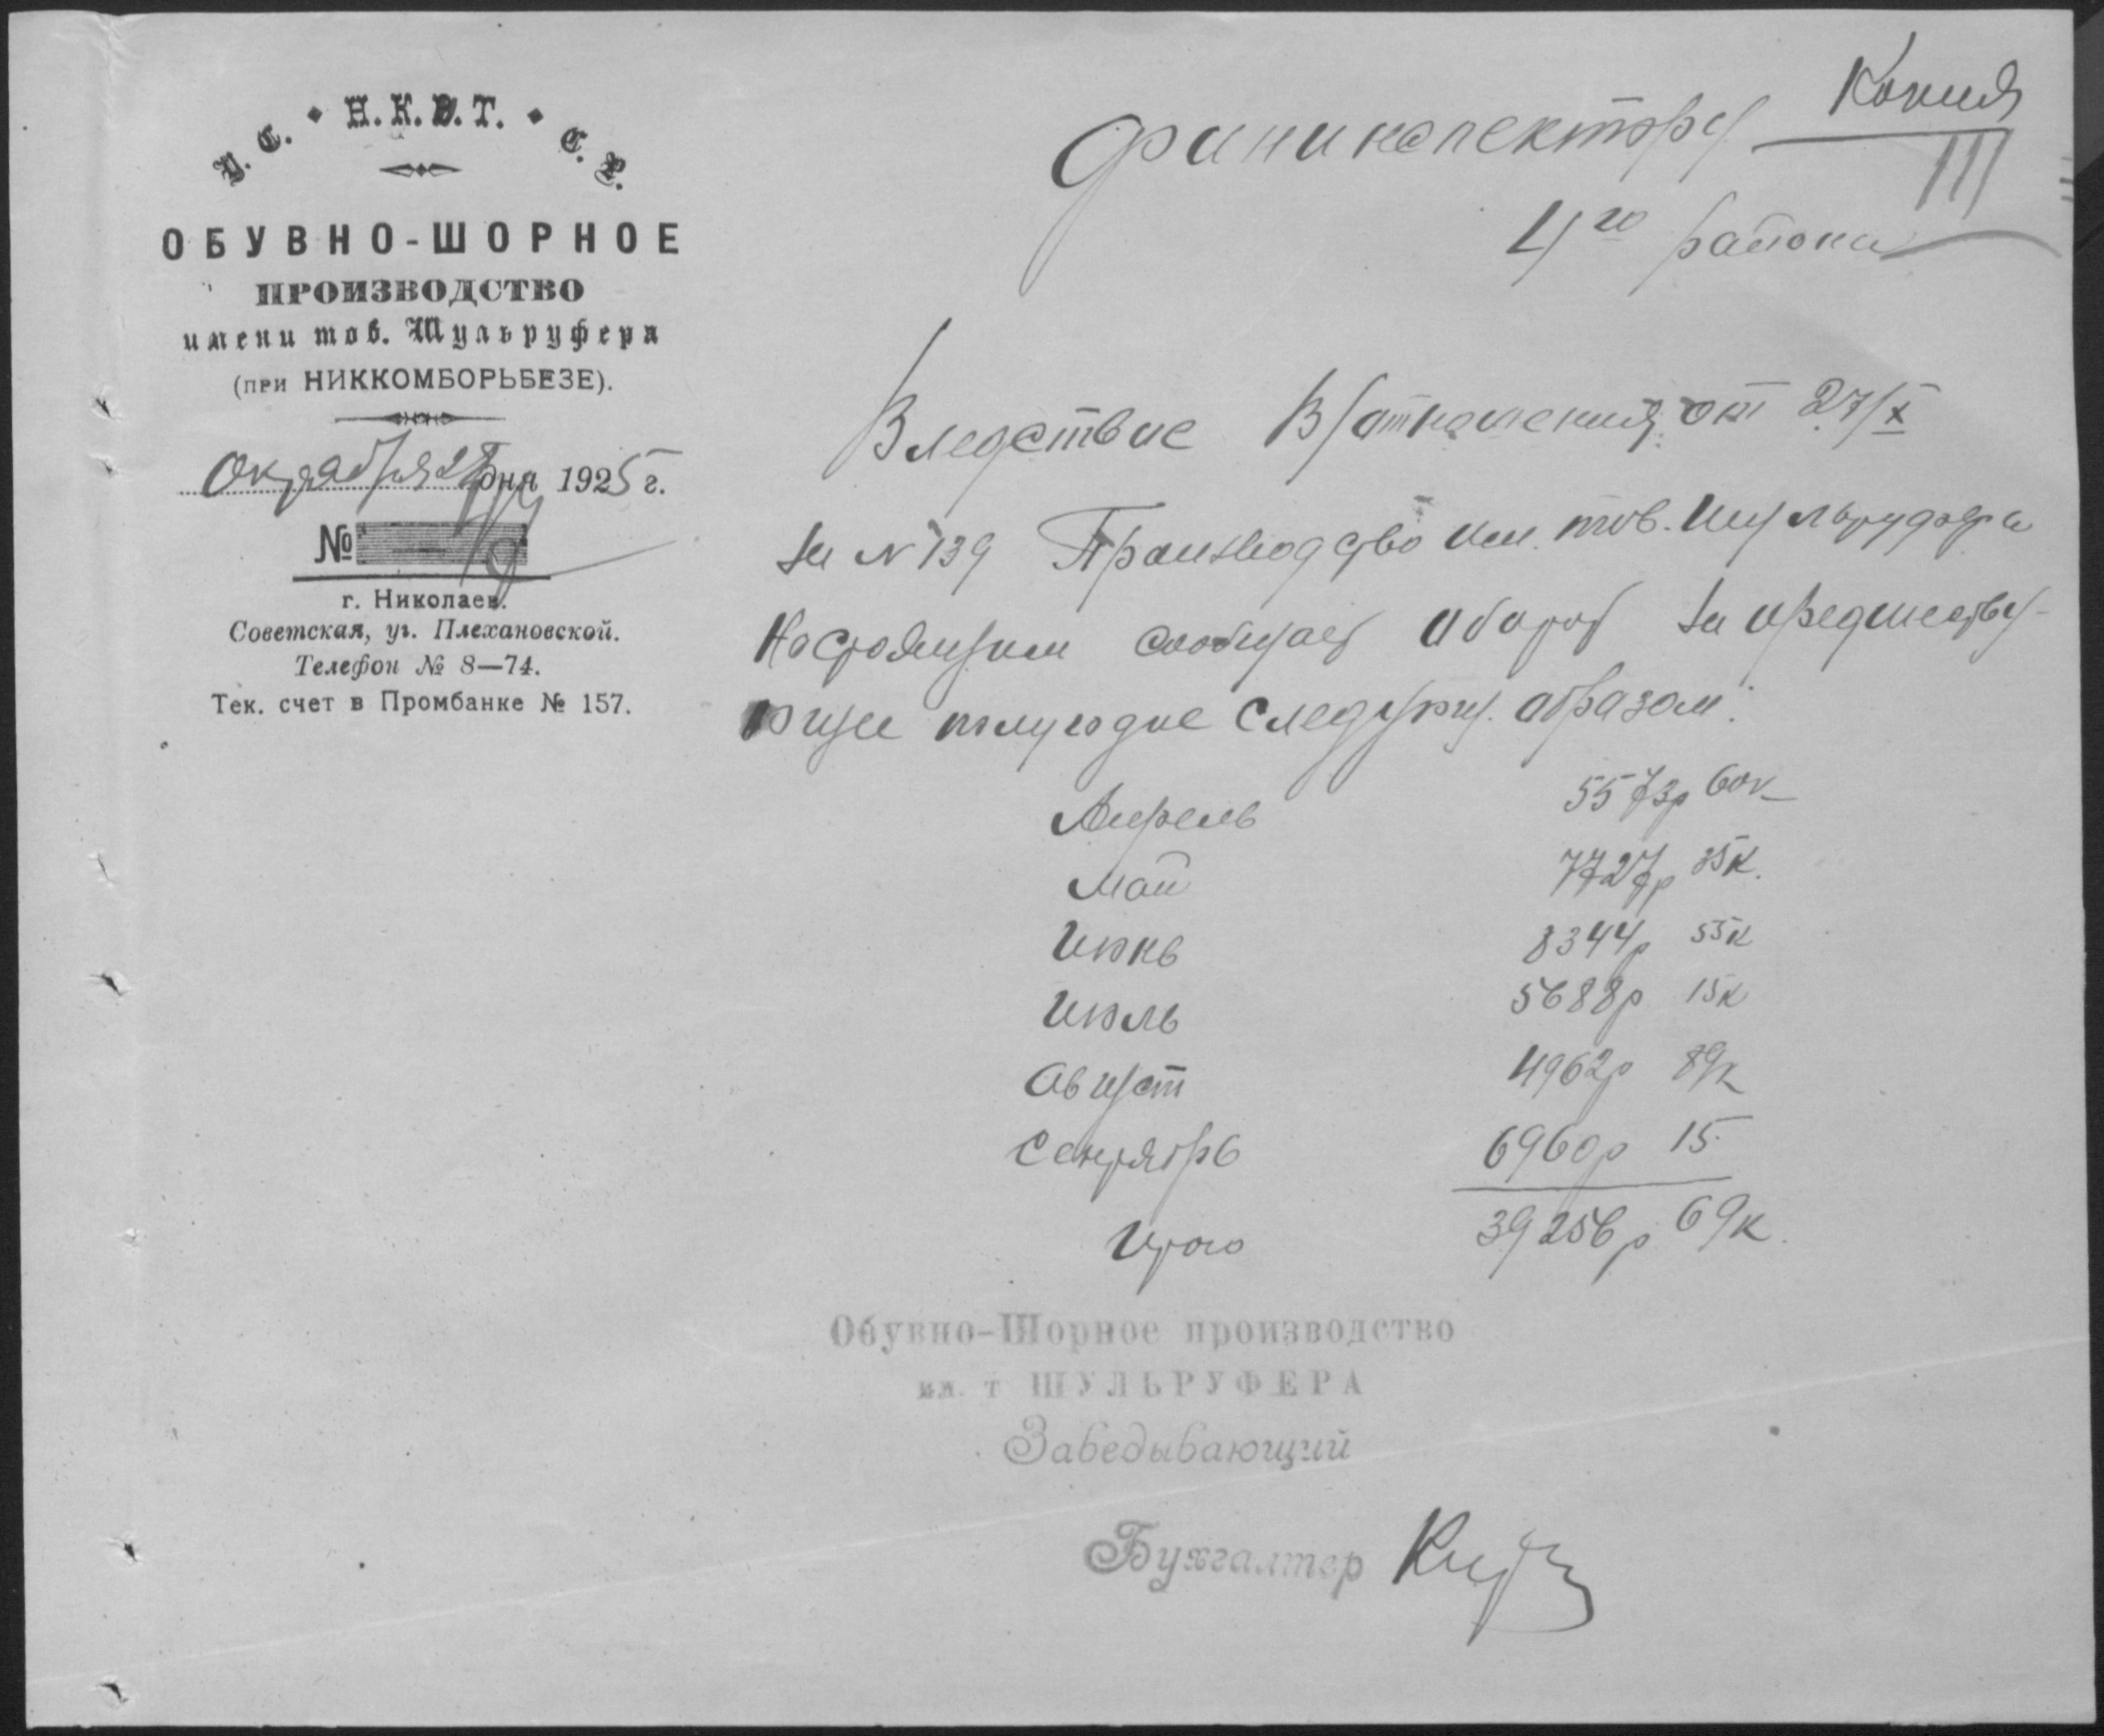 У. С. Н.К.В.Т. С. Р.
ОБУВНО-ШОРНОЕ
ПРОИЗВОДСТВО
имени тов. Шульруфера
(при НИККОМБОРЬБЕЗЕ).
Октября 28 дня 1925 г.
№
г. Николаев.
Советская, уг. Плехановской.
Телефон № 8—74.
Тек. счет в Промбанке № 157.
Копия
Фининспектору
III
4го района
Вледствие В/отношения от 27/X
за N 139 Производство им. тов. Шульруфера
Настоящим сообщает оборот за предшеству-
ющее полугодие следующ. образом:
Апрель 5573р 60к
Май 7727р 35к.
Июнь 8344р 55к
Июль 5688р 15к
Август 4962р 89к
Сентябрь 6960р 15
Итого 39256р 69к.
Обувно-Шорное производство
им. т ШУЛЬРУФЕРА
Заведывающий
Бухгалтер